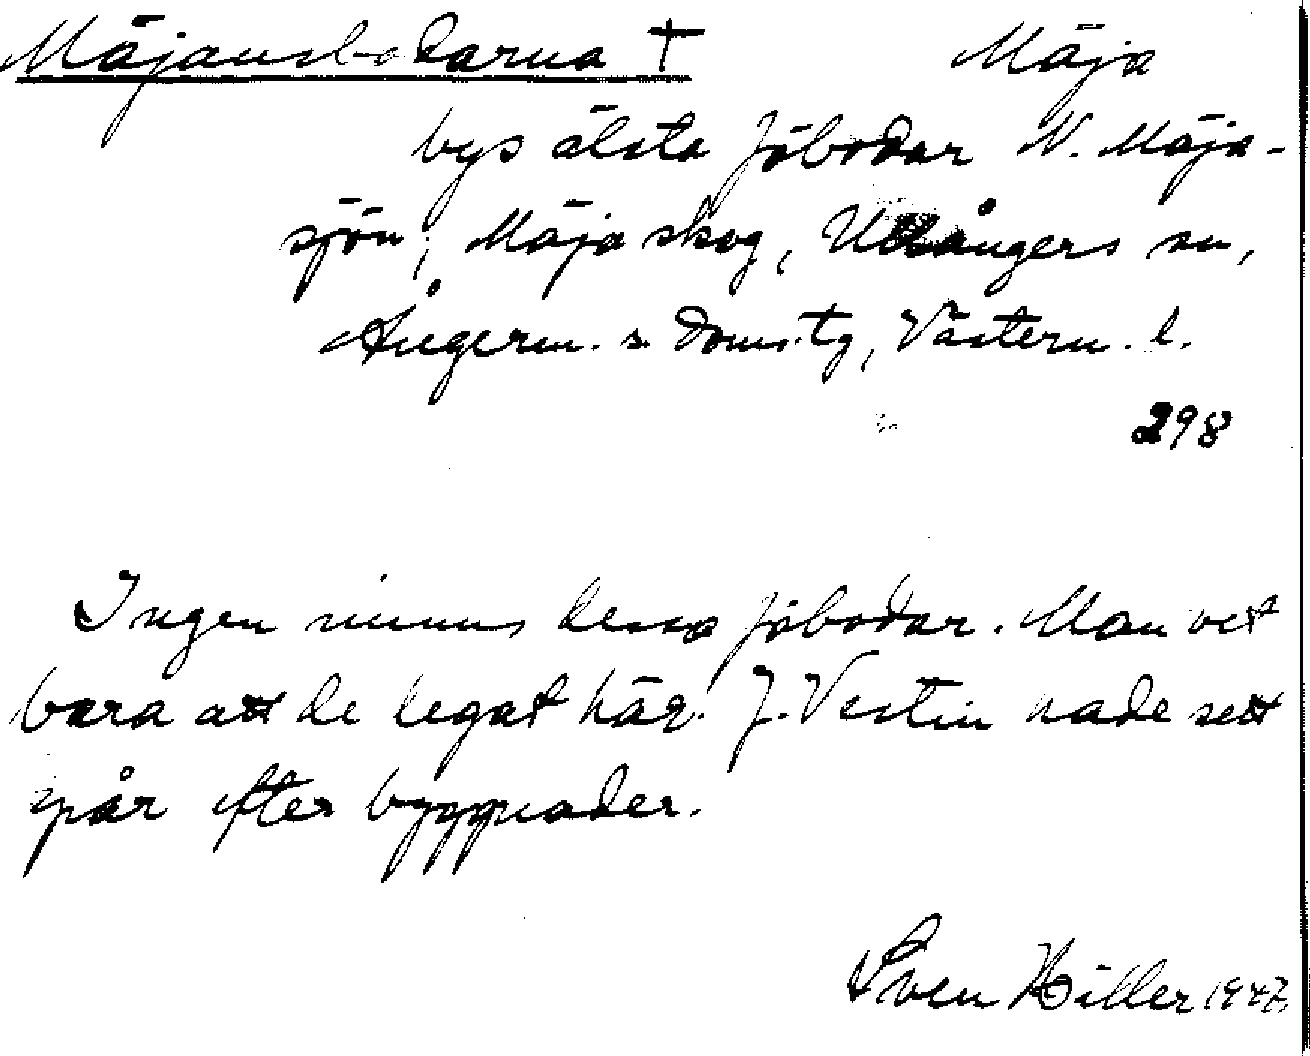 Mäjansbodarna † Mäja
bys älsta fäbodar N. Mäja-
sjön, Mäja skog, Ullångers sn,
Ångerm. s. doms.tg, Västern. l.
298
Ingen minns dessa fäbodar. Man vet
bara att de legat här. J. Vestin hade sett
spår efter byggnader.
Sven Hiller